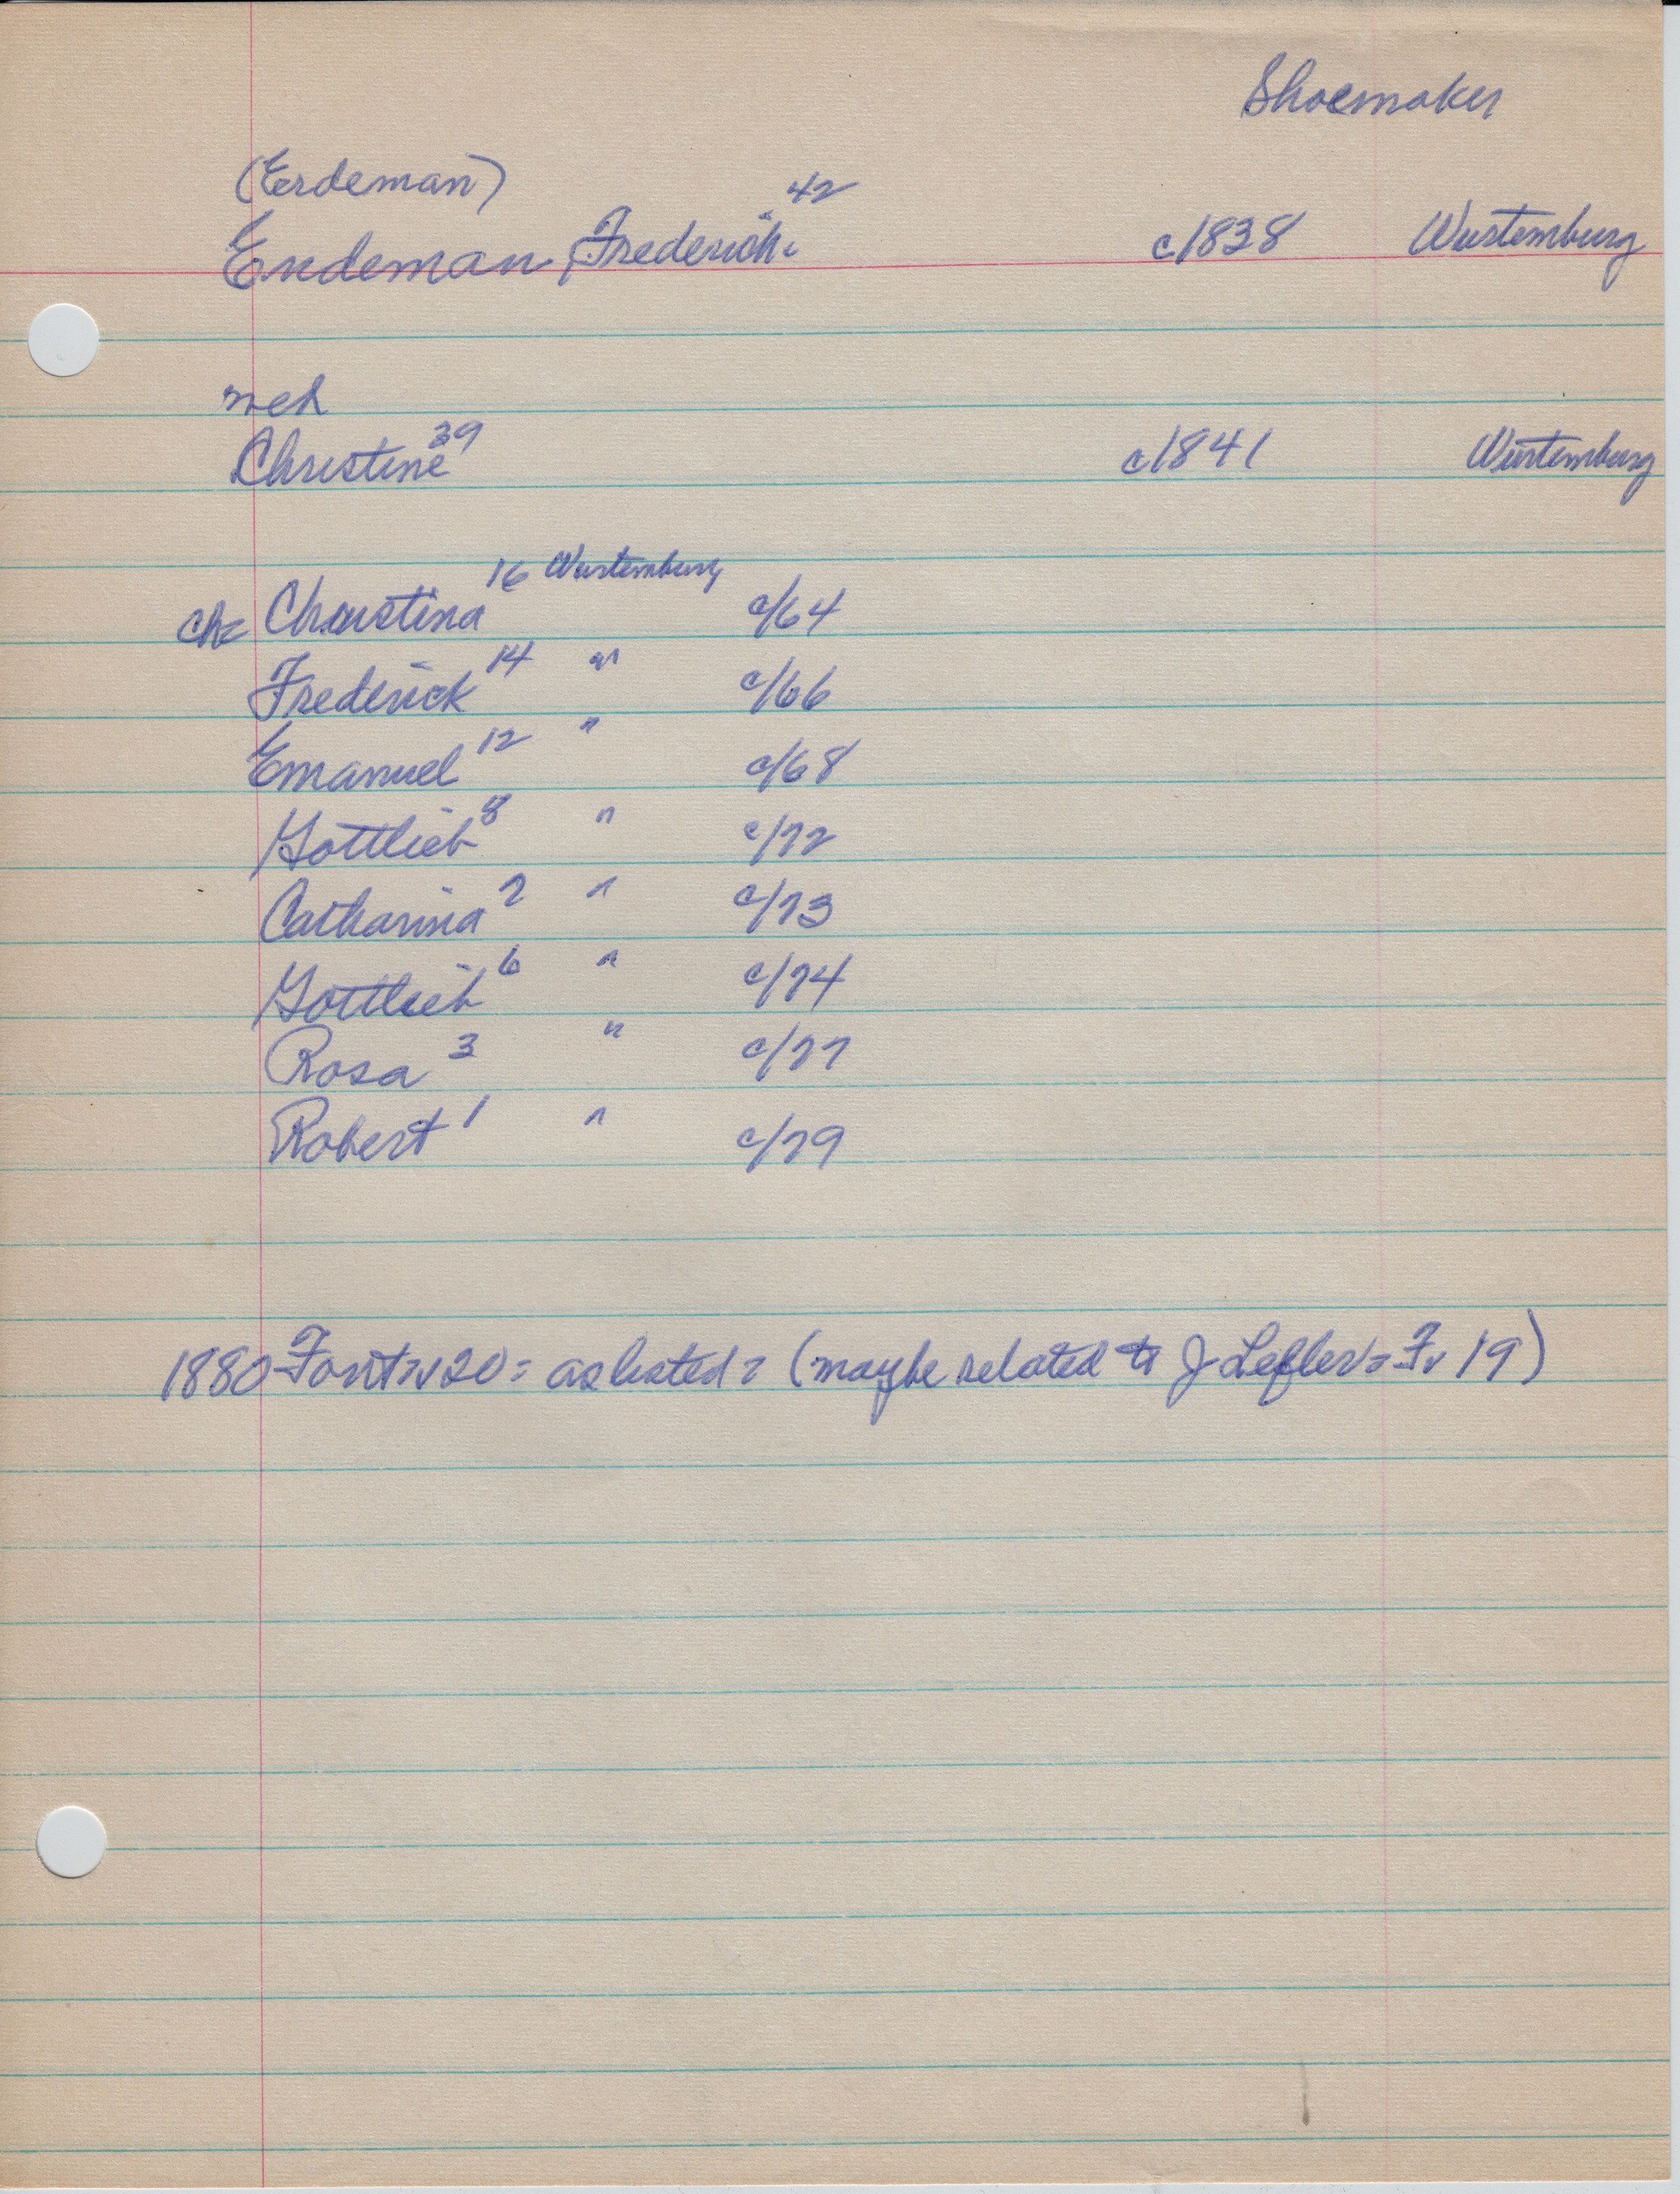 Shoemaker
(Erdeman)
Endeman, Frederick 42 c1838 Wurtemburg
med
Christine 39 c1841 Wurtemburg
ch= Christina 16 Wurtemburg c/64
Frederick 14 " c/66
Emanuel 12 " c/68
Gottlieb 8 " c/72
Catharina 7 " c/73
Gottlieb 6 " c/74
Rosa 3 " c/77
Robert 1 " c/79
1880 Fort N20 = as listed = (maybe related to J Lefler = Fv 19)